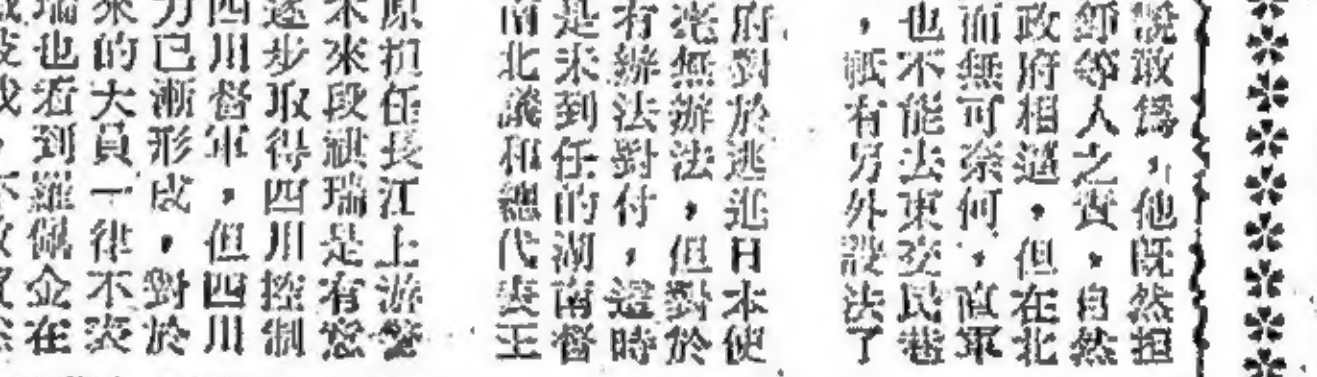 說敢爲，他既然担
師等人之責，自然
政府相逼。但在北
而無可奈何，直軍
也不能去東交民巷
，祇有另外設法了
府對於逃進日本使
毫無辦法，但對於
有辦法對付，這時
是未到任的湖南督
南北議和總代表王
原担任長江上游警
未來段祺瑞是有意
逐步取得四川控制
四川督軍，但四川
力已漸形成，對於
來的大員一律不表
瑞也看到羅佩金在